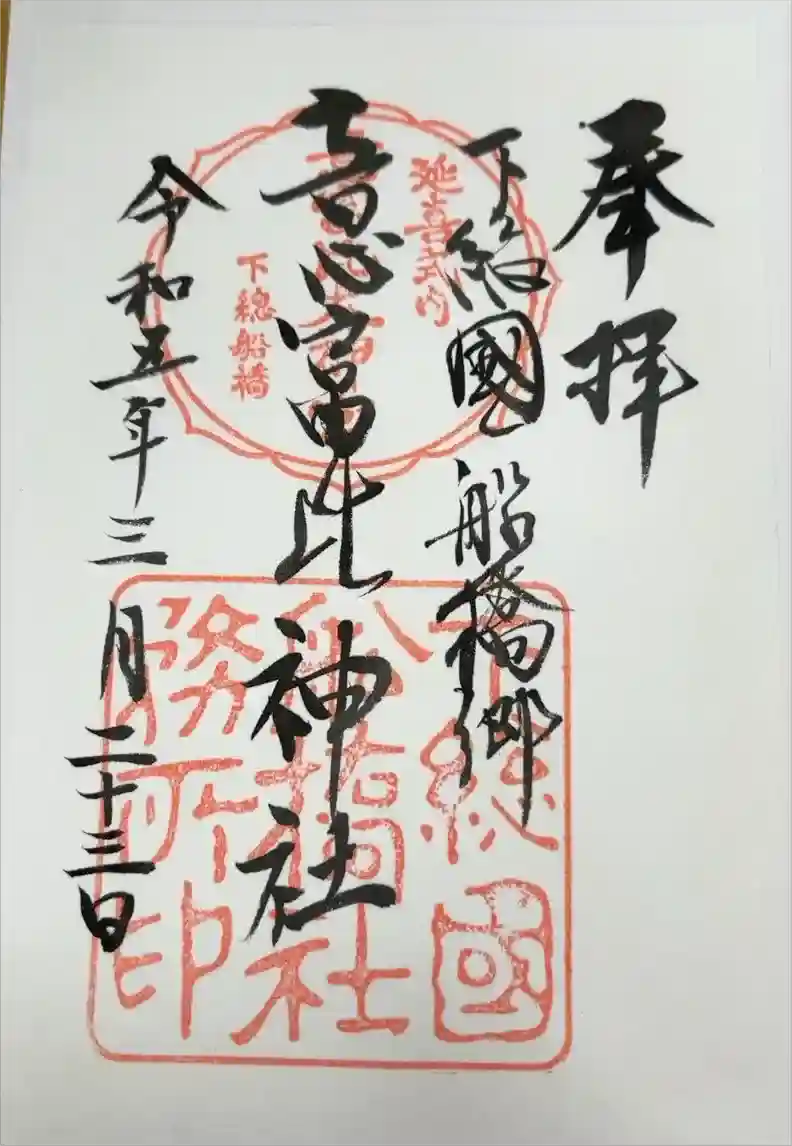 奉拝
下総國船橋郷
意富比神社
令和五年三月二十三日
延喜式内
意富比神社
下総船橋
下総國
船橋社
務所印